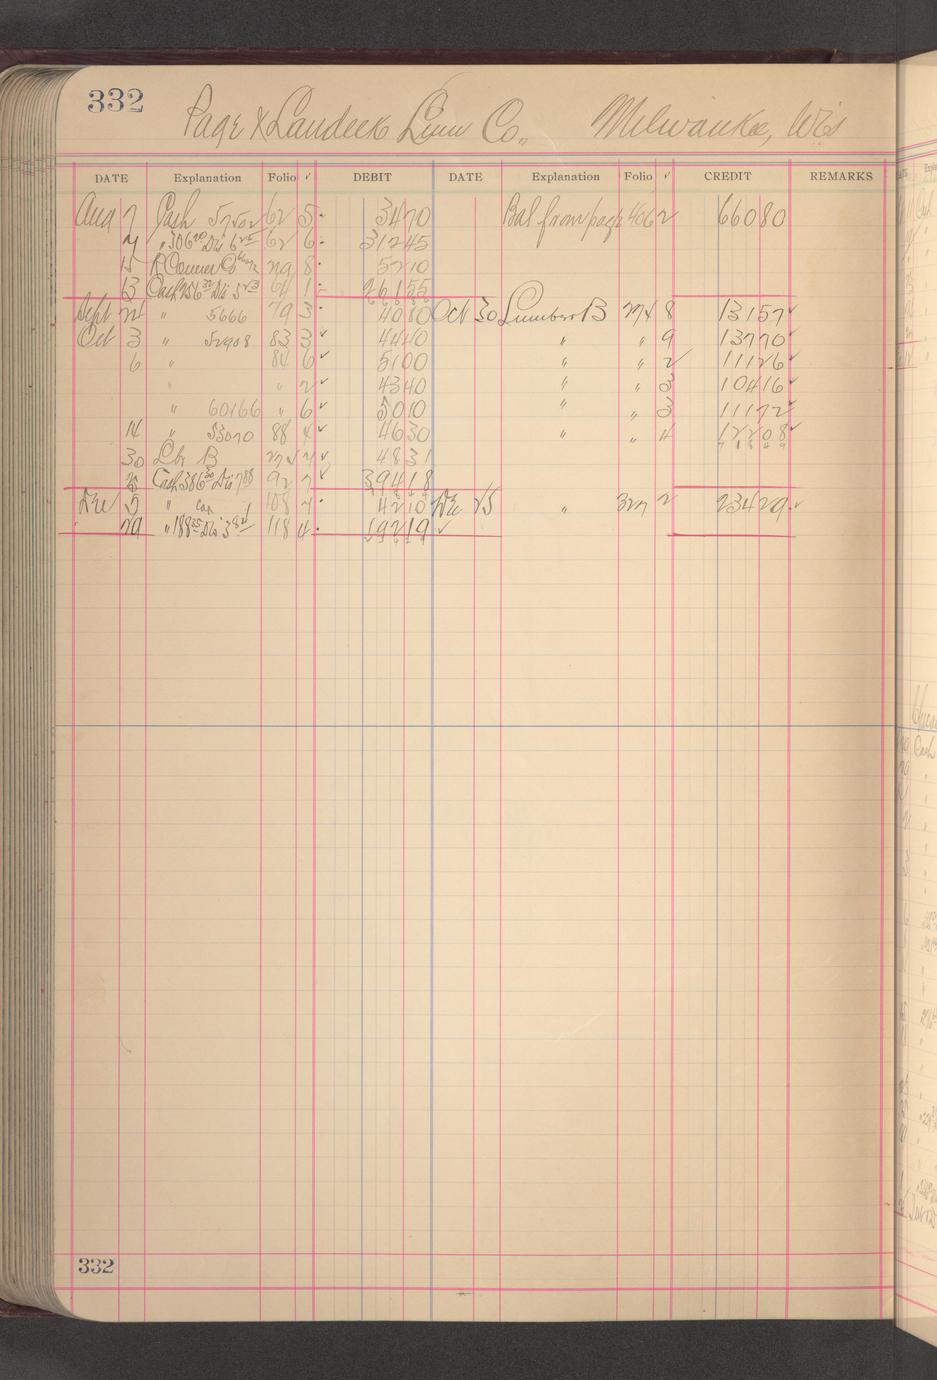 332
Page & Landeck Lum Co., Milwaukee, Wis
DATE Explanation Folio ✓ DEBIT DATE Explanation Folio ✓ CREDIT REMARKS
Aug 7 Cash 62 5 34 70 Bal from page 406 2 660 80
" 306 20 Dis 6 25 62 6 312 45
15 8 52 10
13 Cash 256 32 Dis 5 23 64 1 261 55
Sept " 5666 79 3 40 80 Oct 30 Lumber B 274 8 131 57 ✓
Oct 3 " 52908 83 3 ✓ 44 40 " " 9 137 70 ✓
6 " 84 6 ✓ 51 00 " " 2 111 26 ✓
" " 2 ✓ 43 40 " " 3 104 16 ✓
" 60166 " 6 ✓ 50 10 " " 3 111 72 ✓
14 " 53070 88 4 ✓ 46 30 " " 4 122 08 ✓
30 Lbr B 274 7 ✓ 48 31
Cash 386 30 Dis 7 88 92 7 ✓ 394 18
Dec 5 " 108 7 42 10 Dec 25 " 327 2 234 29 ✓
29 " 188 35 Dis 3 84 118 4 192 19 ✓
332